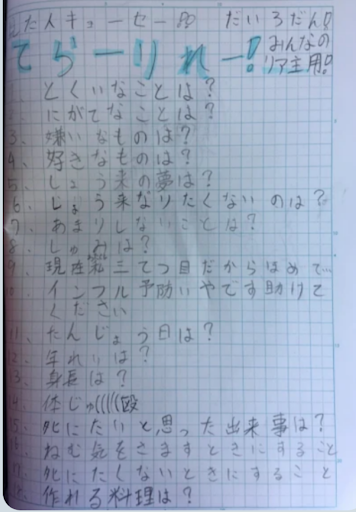 だいろだん!
てらーりれー!
みんなの
リア主用?
とくいなことは?
にがてなことは?
3、嫌いなものは?
4、好きなものは?
5、しょう来の夢は?
6、しょう来なりたくないのは?
7、あまりしないことは?
8、しゅみは?
9、現在 三てつ目だからはめて
インフル予助いやです助けて
ください
11、たんじょう日は?
12、年れいは?
13、身長は?
14、体じゅ(((((殴
15、死にたいと思った出来事は?
16、ねむ気をさますときにすること
17、死にたくないときにすること
作れる料理は?